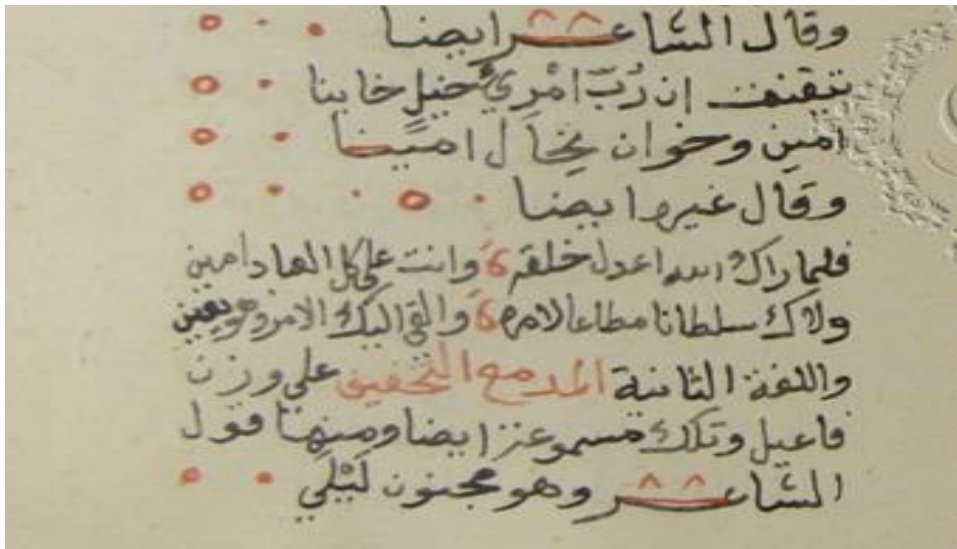 وقال الشاعر ايضا
تيقنت ان رُبّ امْرِئٍ خيل خاينا
امين وخوان يخال امينا
وقال غيره ايضا
فلما راك الله اعدل خلقه وانت على كل العباد امين
ولاك سلطانا مطاعا لامره والقى اليك الامر وهو يقين
واللغة الثانية المد مع التخفيف على وزن
فاعيل وتلك مسموعة ايضا ومنها قول
الشاعر وهو مجنون ليلى